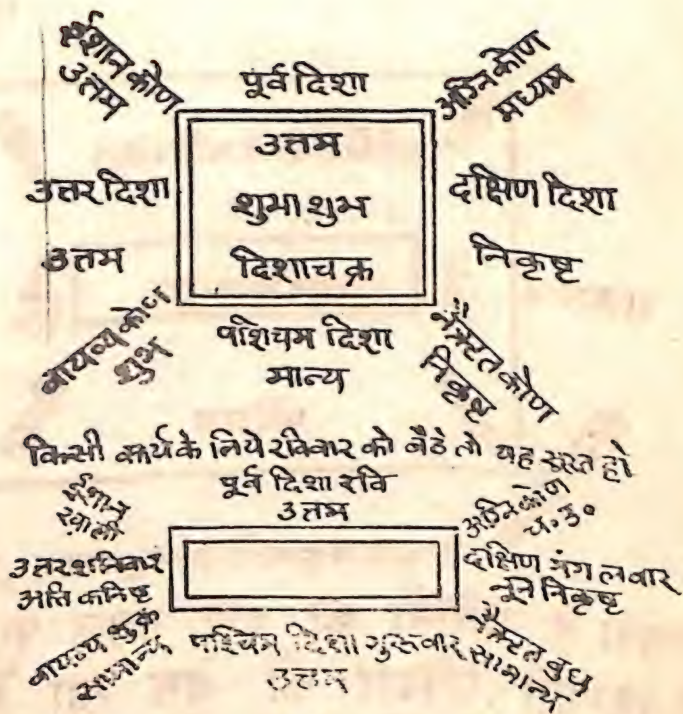 ईशान कोण
उत्तम
पूर्व दिशा
अग्नि कोण
मध्यम
उत्तर दिशा
उत्तम
उत्तम
शुभाशुभ
दिशाचक्र
दक्षिण दिशा
निकृष्ट
वायव्य कोण
शुभ
पश्चिम दिशा
मान्य
नैऋत कोण
निकृष्ट
किसी कार्य के लिये रविवार को बैठे तो यह सूरत हो
ईशान
खाली
पूर्व दिशा रवि
उत्तम
अग्नि कोण
च. उ॰
उत्तर शनिवार
अति कनिष्ट
दक्षिण मंगलवार
निकृष्ट
वायव्य शुक्र
सामान्य
पश्चिम दिशा गुरुवार
उत्तम
नैऋत बुध
सामान्य